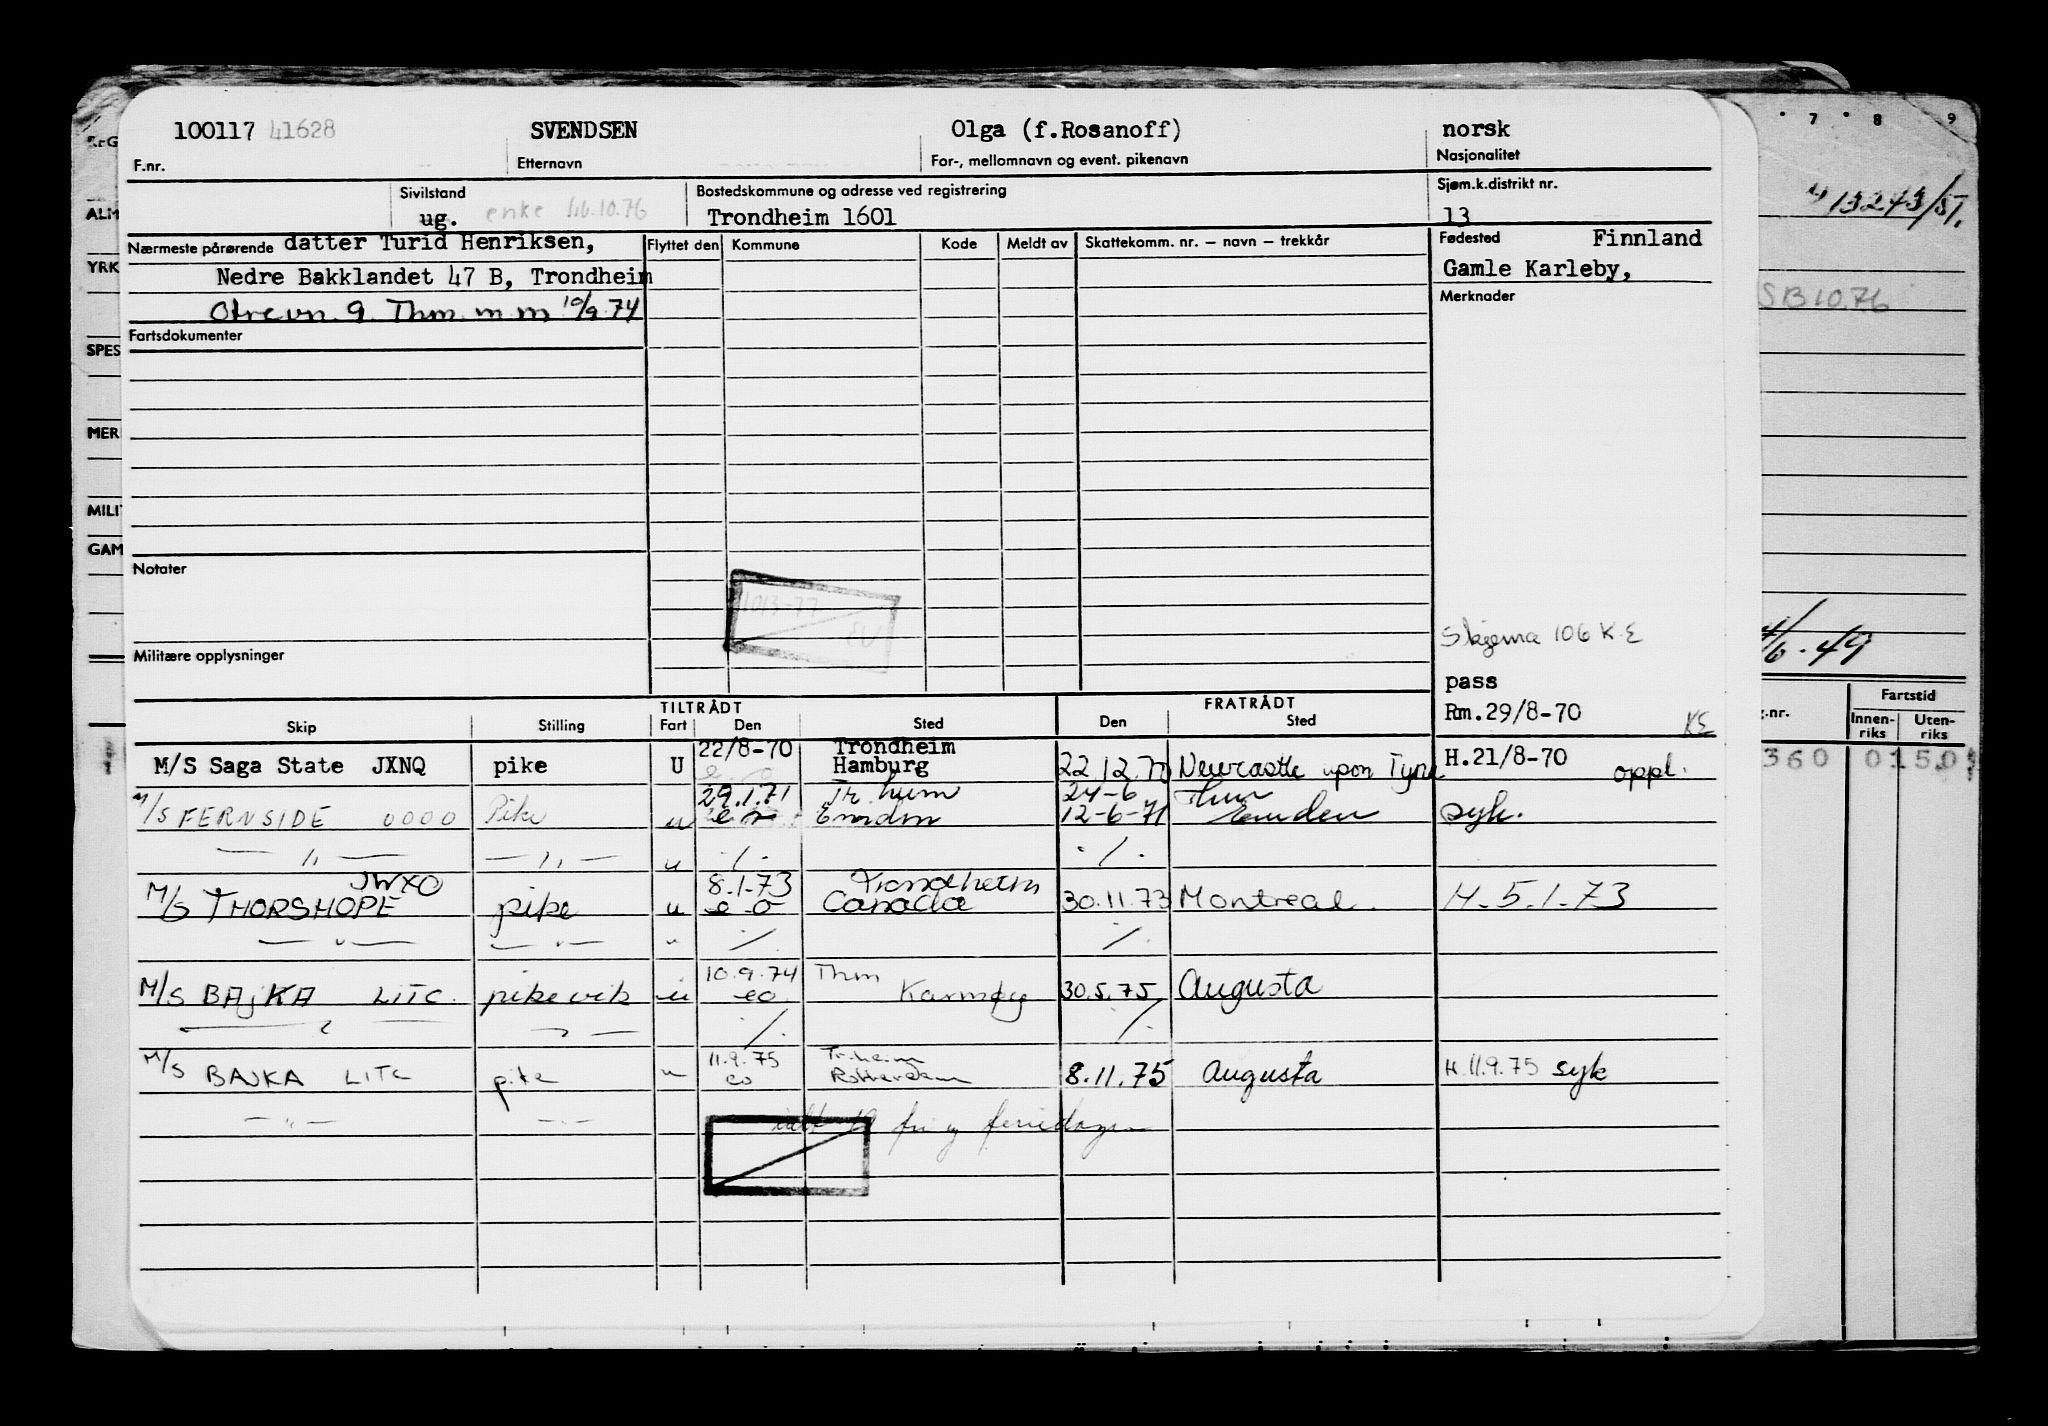 100117 41628 SVENDSEN Olga (f.Rosanoff) norsk
F.nr. Etternavn For-, mellomnavn og event. pikenavn Nasjonalitet
Sivilstand Bostedskommune og adresse ved registrering Sjøm.k.distrikt nr.
ug. enke 10.76 Trondheim 1601 13
Nærmeste pårørende datter Turid Henriksen, Flyttet den Kommune Kode Meldt av Skattekomm. nr. – navn – trekkår Fødested Finnland
Nedre Bakklandet 47 B, Trondheim Gamle Karleby,
9 Thm 10/9 74 Merknader
Fartsdokumenter
Notater
1013-77
Skjema 106 K.E
Militære opplysninger
pass
TILTRÅDT FRATRÅDT
Skip Stilling Fart Den Sted Den Sted Rm.29/8-70 KE
22/8-70 Trondheim
M/S Saga State JXNQ pike U Hamburg 22.12.70 Newcastle upon Tyne H.21/8-70 oppl.
29.1.71 Tr.heim 24-6 Thm
M/S FERNSIDE 0000 Pike u e o Emden 12-6-71 Emden syk.
— ,, — — ,, — u ./. ./.
JWXO 8.1.73 Trondheim
M/S THORSHOPE pike u e o Canada 30.11.73 Montreal. H. 5.1.73
— " — — " — " ./. ./.
10.9.74 Thm
M/S BAJKA LITC. pike vik u eo Karmøy 30.5.75 Augusta
./. ./.
11.9.75 Tr.heim
M/S BAJKA LITC pike u eo Rotterdam 8.11.75 Augusta H.11.9.75 syk
— " — — " — fri og feriedager
7 8 9
13273/57.
SB 10.76
/6.49
Fartstid
Innen-riks Uten-riks
360 0150
ALM
YRK
SPES
MER
MILI
GAM